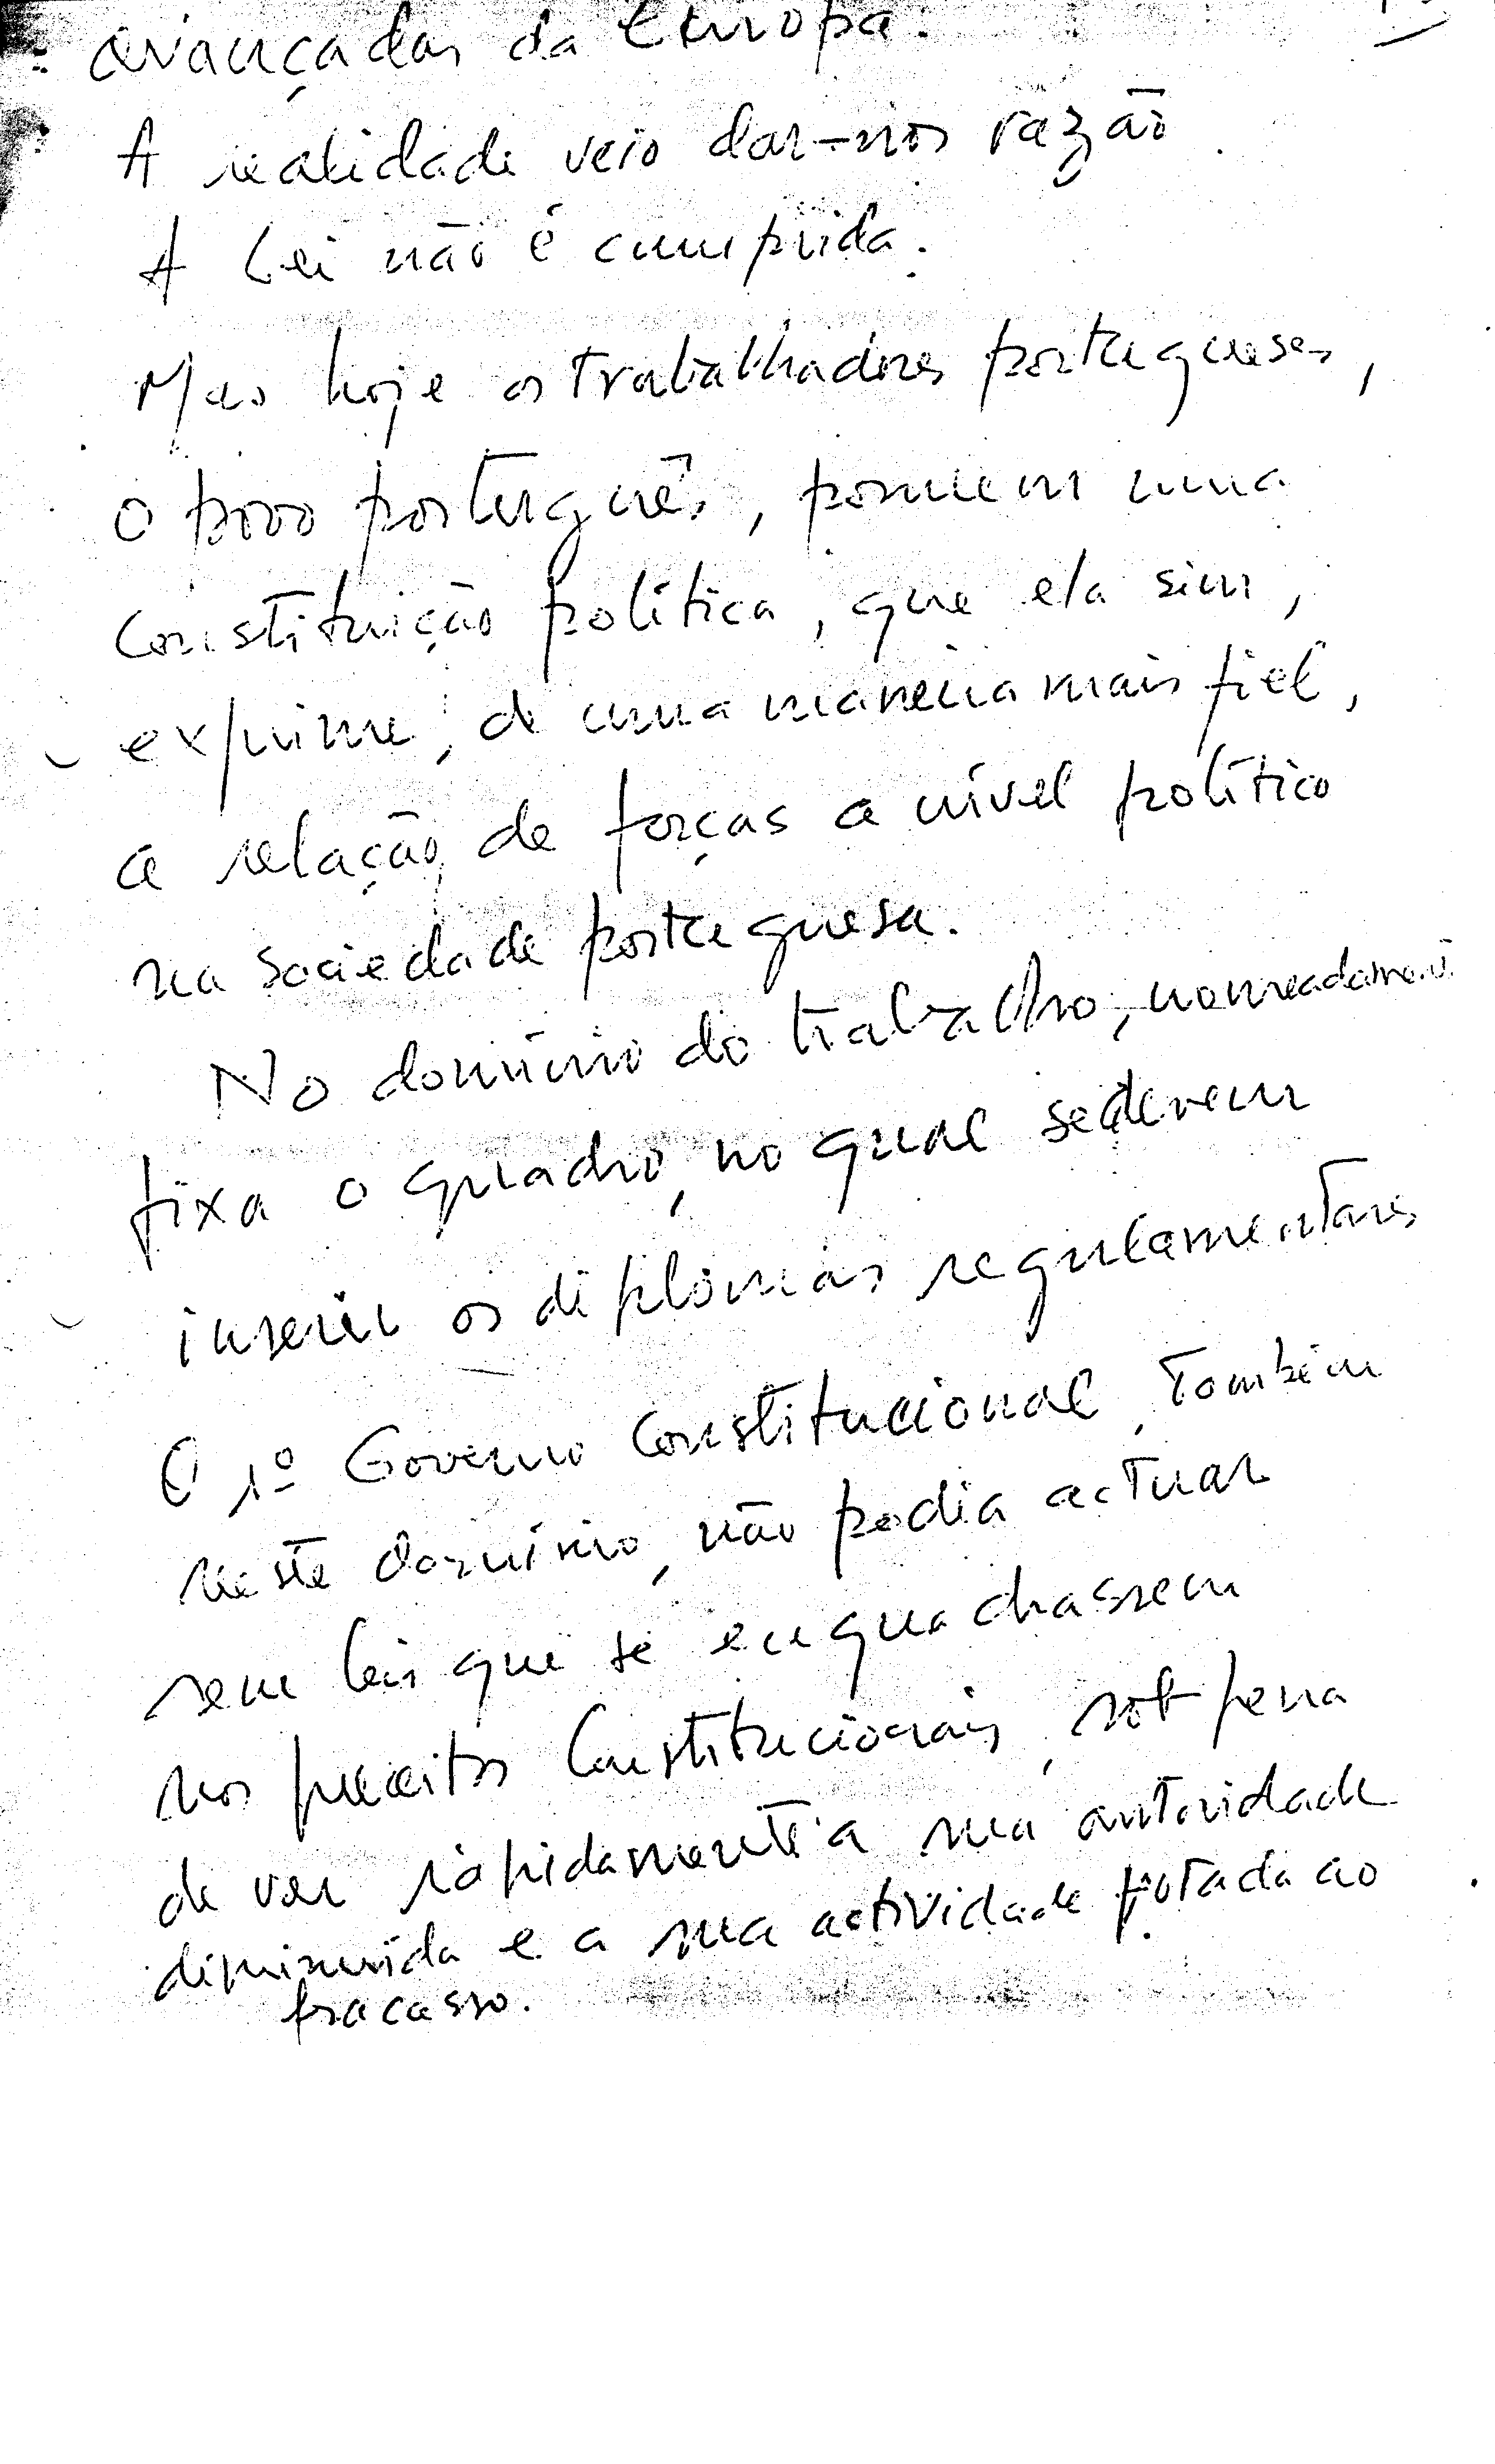 avançadas da Europa.
A realidade veio dar-nos razão.
A Lei não é cumprida.
Mas hoje os trabalhadores portugueses,
o povo português, possuem uma
Constituição política, que ela sim,
exprime, de uma maneira mais fiel,
a relação de forças a nível político
na sociedade portuguesa.
No domínio do trabalho, nomeadament
fixa o quadro, no qual se devem
inserir os diplomas regulamentares
O 1º Governo Constitucional, também
neste domínio, não podia actuar
sem leis que se enquadrassem
nos preceitos Constitucionais, sob pena
de ver rápidamente a sua autoridade
diminuída e a sua actividade fotada ao
fracasso.